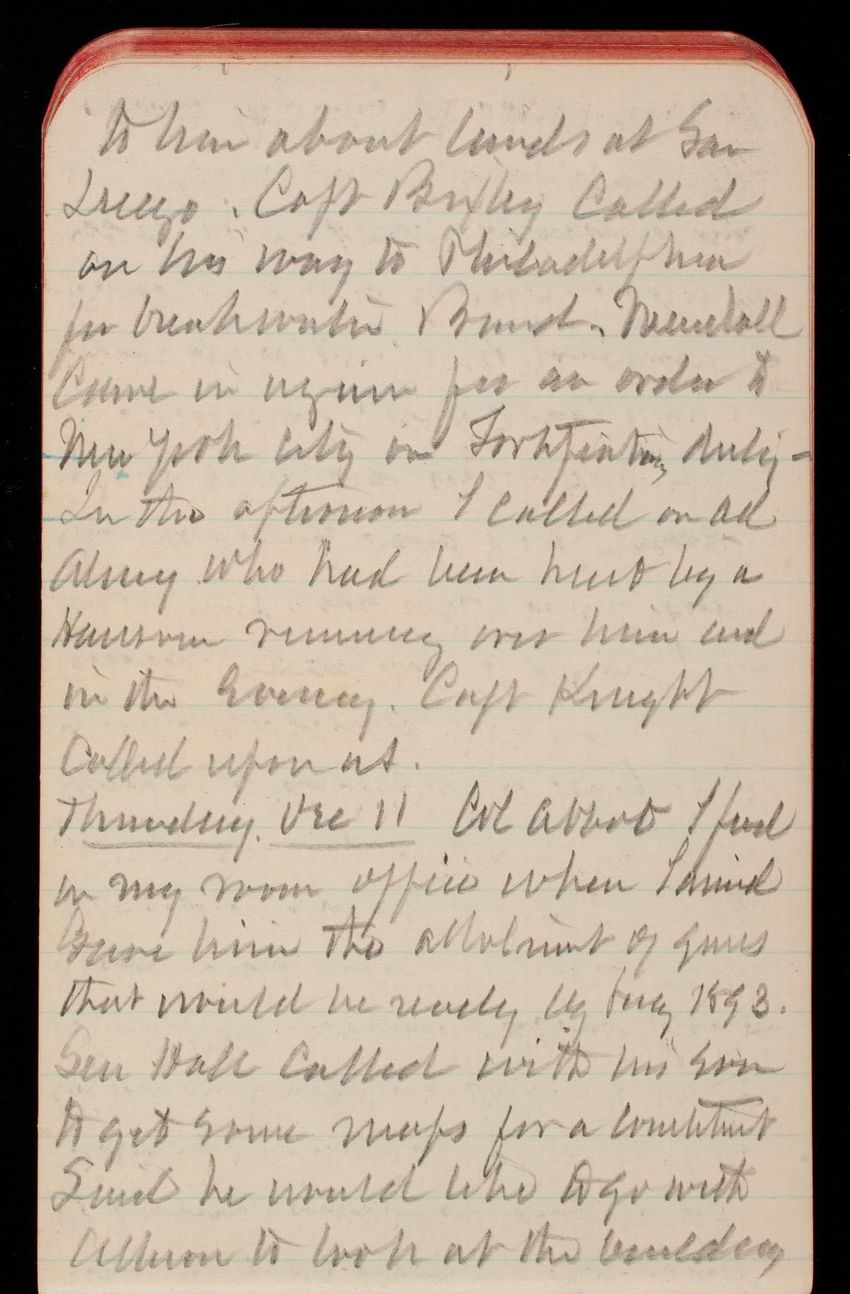 to him about lands at San
Diego. Capt Bixby Called
on his way to Philadelphia
for breakwater Board. Mendell
Came in again for an order to
New York City on Fortification duty -
In the afternoon I called on Ad
Almy who had been hurt by a
Hansom running over him and
in the Evening. Capt Knight
Called upon us.
Thursday, Dec 11 Col Abbot I find
in my room office when I arrived
Gave him the allotment of guns
that would be ready by Aug 1893.
Sen Hale Called with his son
to get some maps for a constituent
Said he would like to go with
Allison to look at the building